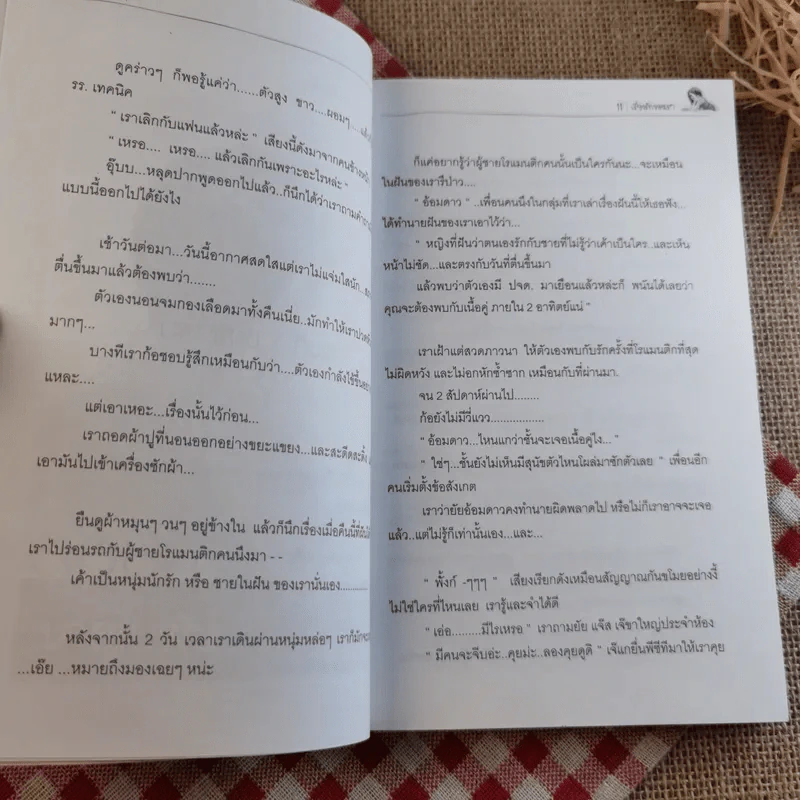 ดูคร่าวๆ ก็พอรู้แค่ว่า......ตัวสูง ขาว....ผอมๆ....
รร. เทคนิค
" เราเลิกกับแฟนแล้วหล่ะ " เสียงนี้ดังมาจากคนข้าง
" เหรอ.... เหรอ.... แล้วเลิกกันเพราะอะไรหล่ะ "
อุ๊บบ...หลุดปากพูดออกไปแล้ว..ก็นึกได้ว่าเราถาม
แบบนี้ออกไปได้ยังไง
เช้าวันต่อมา...วันนี้อากาศสดใสแต่เราไม่แจ่มใสนัก..
ตื่นขึ้นมาแล้วต้องพบว่า....
ตัวเองนอนจมกองเลือดมาทั้งคืนเนี่ย..มักทำให้เรา
มากๆ...
บางทีเราก้อชอบรู้สึกเหมือนกับว่า....ตัวเองกำลังใช้ชีวิต
แหละ....
แต่เอาเหอะ...เรื่องนั้นไว้ก่อน...
เราถอดผ้าปูที่นอนออกอย่างขยะแขยง...และสะดีดสะดิ้ง
เอามันไปเข้าเครื่องซักผ้า...
ยืนดูผ้าหมุนๆ วนๆ อยู่ข้างใน แล้วก็นึกเรื่องเมื่อคืนนี้ที่
เราไปร่อนรถกับผู้ชายโรแมนติกคนนึงมา - -
เค้าเป็นหนุ่มนักรัก หรือ ชายในฝัน ของเรานั่นเอง............
หลังจากนั้น 2 วัน เวลาเราเดินผ่านหนุ่มหล่อๆ เราก็มักจะ
...เอ๊ย ...หมายถึงมองเฉยๆ หน่ะ
11
ก็แค่อยากรู้ว่าผู้ชายโรแมนติกคนนั้นเป็นใครกันนะ...จะเหมือน
ในฝันของเรารึป่าว....
" อ้อมดาว " ..เพื่อนคนนึงในกลุ่มที่เราเล่าเรื่องฝันนี้ให้เธอฟัง..
ได้ทำนายฝันของเราเอาไว้ว่า...
" หญิงที่ฝันว่าตนเองรักกับชายที่ไม่รู้ว่าเค้าเป็นใคร..และเห็น
หน้าไม่ชัด...และตรงกับวันที่ตื่นขึ้นมา
แล้วพบว่าตัวเองมี ปจด. มาเยือนแล้วหล่ะก็ พนันได้เลยว่า
คุณจะต้องพบกับเนื้อคู่ ภายใน 2 อาทิตย์แน่ "
เราเฝ้าแต่สวดภาวนา ให้ตัวเองพบกับรักครั้งที่โรแมนติกที่สุด
ไม่ผิดหวัง และไม่อกหักซ้ำซาก เหมือนกับที่ผ่านมา.
จน 2 สัปดาห์ผ่านไป........
ก้อยังไม่มีวี่แวว.................
" อ้อมดาว...ไหนแกว่าชั้นจะเจอเนื้อคู่ไง... "
" ใช่ๆ...ชั้นยังไม่เห็นมีสุนัขตัวไหนโผล่มาซักตัวเลย " เพื่อนอีก
คนเริ่มตั้งข้อสังเกต
เราว่ายัยอ้อมดาวคงทำนายผิดพลาดไป หรือไม่ก็เราอาจจะเจอ
แล้ว..แต่ไม่รู้ก็เท่านั้นเอง...และ...
" พั้งก์ -ๆๆๆ " เสียงเรียกดังเหมือนสัญญาณกันขโมยอย่างงี้
ไม่ใช่ใครที่ไหนเลย เรารู้และจำได้ดี
" เอ่อ.........มีไรเหรอ " เราถามยัย แจ๊ส เจ๊ขาใหญ่ประจำห้อง
" มีคนจะจีบอ่ะ..คุยม่ะ..ลองคุยดูดิ " เจ๊แกยื่นพีซีทีมาให้เราคุย